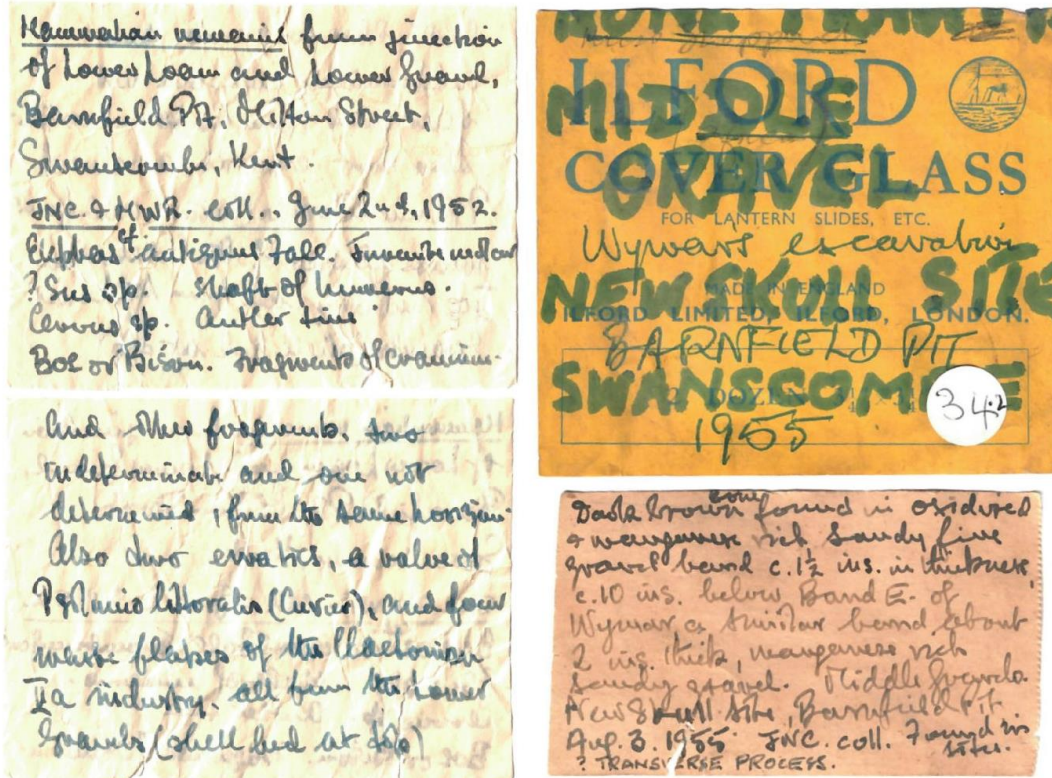 Mammalian remains from junction
of Lower Loam and Lower Gravel,
Barnfield Pit, Milton Street,
Swanscombe, Kent.
JNC. & HWR. coll., June 2nd, 1952.
Elephas cf antiquus Falc. Juvenile molar
? Sus sp. shaft of humerus.
Cervus sp. Antler tine
Bos or Bison. Fragments of cranium.
And other fragments, two
indeterminate and one not
determined, from the same horizon.
Also two erratics, a valve of
littoralis (Cuvier), and four
waste flakes of the Clactonian
IIa industry, all from the Lower
Gravels (shell bed at top)
MIDDLE
GRAVEL
ILFORD
COVER GLASS
FOR LANTERN SLIDES, ETC.
Wymers excavation
NEW SKULL SITE
MADE IN ENGLAND
ILFORD LIMITED, ILFORD, LONDON.
BARNFIELD PIT
SWANSCOMBE
2 DOZEN 3¼
34.2
1955
Dark brown bone found in oxidised
& manganese rich sandy fine
gravel band c. 1½ ins. in thickness,
c. 10 ins. below Band E. of
Wymer a similar band about
2 ins. thick, manganese rich
sandy gravel. Middle Gravels.
New Skull Site, Barnfield Pit
Aug. 3. 1955 JNC. coll. Found in
situ.
? TRANSVERSE PROCESS.